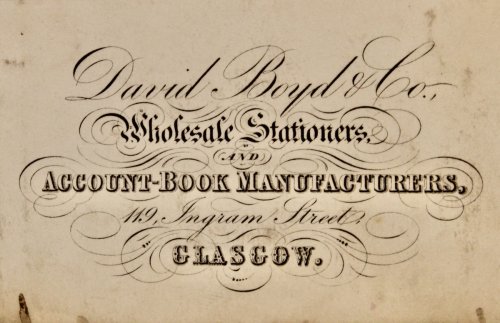 David Boyd & Co.,
Wholesale Stationers,
AND
ACCOUNT-BOOK MANUFACTURERS,
119, Ingram Street,
GLASGOW.